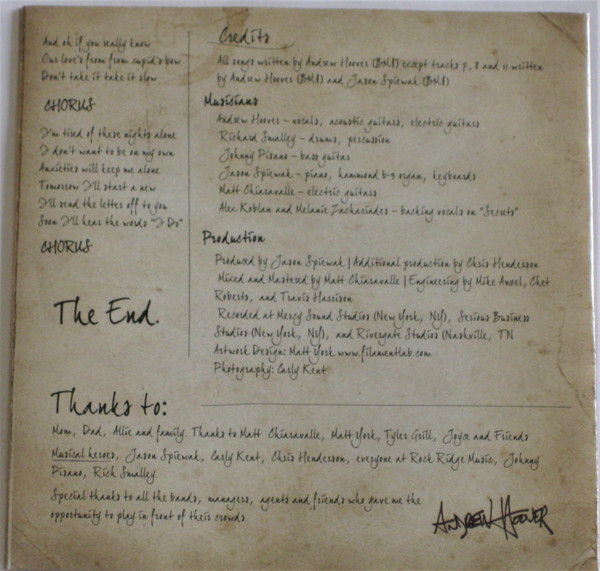 And oh if you really know
Our love's from from cupid's bow
Don't take it take it slow
CHORUS
I'm tired of these nights alone
I don't want to be on my own
Anxieties will keep me alone
Tomorrow I'll start a new
I'll send the letter off to you
Soon I'll hear the words "I Do"
CHORUS
The End.
Credits
All songs written by Andrew Hoover (BMI) except tracks 7, 8 and 11 written
by Andrew Hoover (BMI) and Jason Spiewak (BMI)
Musicians
Andrew Hoover - vocals, acoustic guitars, electric guitars
Richard Smalley - drums, percussion
Johnny Pisano - bass guitar
Jason Spiewak - piano, hammond b-3 organ, keyboards
Matt Chiaravalle - electric guitars
Alex Koblan and Melanie Zachariades - backing vocals on "Secrets"
Production
Produced by Jason Spiewak | Additional production by Chris Henderson
Mixed and Mastered by Matt Chiaravalle | Engineering by Mike Ansel, Chet
Roberts, and Travis Harrison
Recorded at Mercy Sound Studios (New York, NY), Serious Business
Studios (New York, NY), and Rivergate Studios (Nashville, TN
Artwork Design: Matt York www.filamentlab.com
Photography: Carly Kent
Thanks to:
Mom, Dad, Allie and family. Thanks to Matt Chiaravalle, Matt York, Tyler Grill, Joyce and Friends
Musical heroes, Jason Spiewak, Carly Kent, Chris Henderson, everyone at Rock Ridge Music, Johnny
Pisano, Rich Smalley.
Special thanks to all the bands, managers, agents and friends who gave me the
opportunity to play in front of their crowds.
ANDREW HOOVER